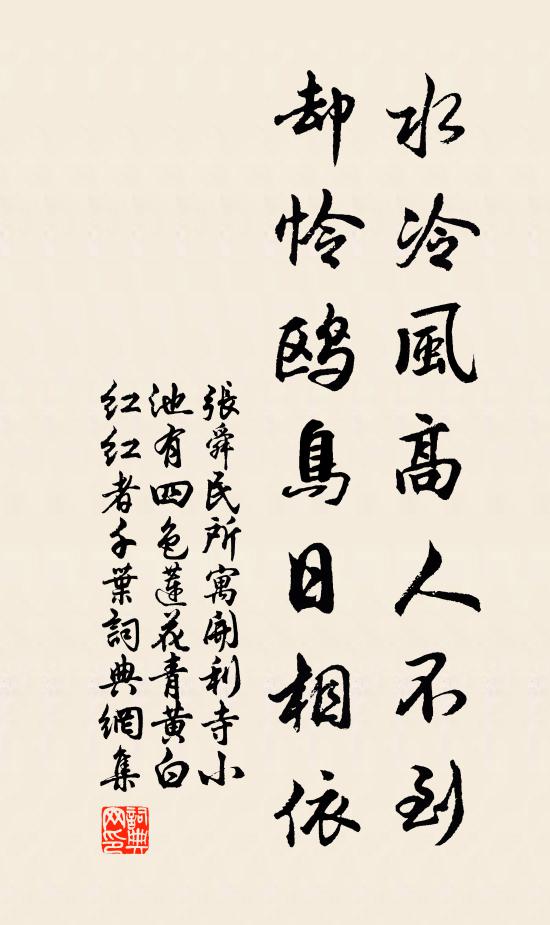 水冷風高人不到
却憐鷗鳥日相依
張舜民所寓開利寺小
池有四色蓮花青黃白
红红者千葉詞典網集
詞典网印